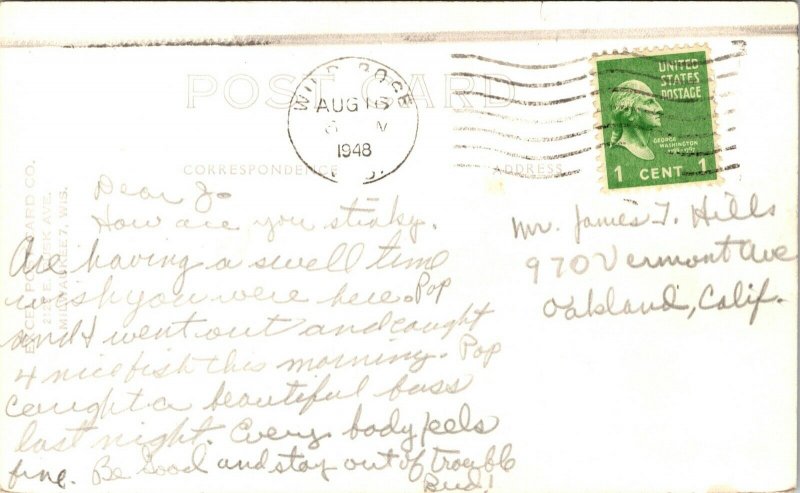 POST CARD
WILD ROSE
AUG 16
1948
WIS.
UNITED
STATES
POSTAGE
GEORGE
WASHINGTON
1 CENT 1
CORRESPONDENCE
ADDRESS
EXCEL POST CARD CO.
AVE.
MILWAUKEE 7, WIS.
Dear J-
How are you stinky.
Are having a swell time
wish you were here. Pop
and I went out and caught
4 nice fish this morning. Pop
caught a beautiful bass
last night. Every body feels
fine. Be Good and stay out of Trouble
Bud!
Mr. James T. Hills
970 Vermont Ave
Oakland, Calif.